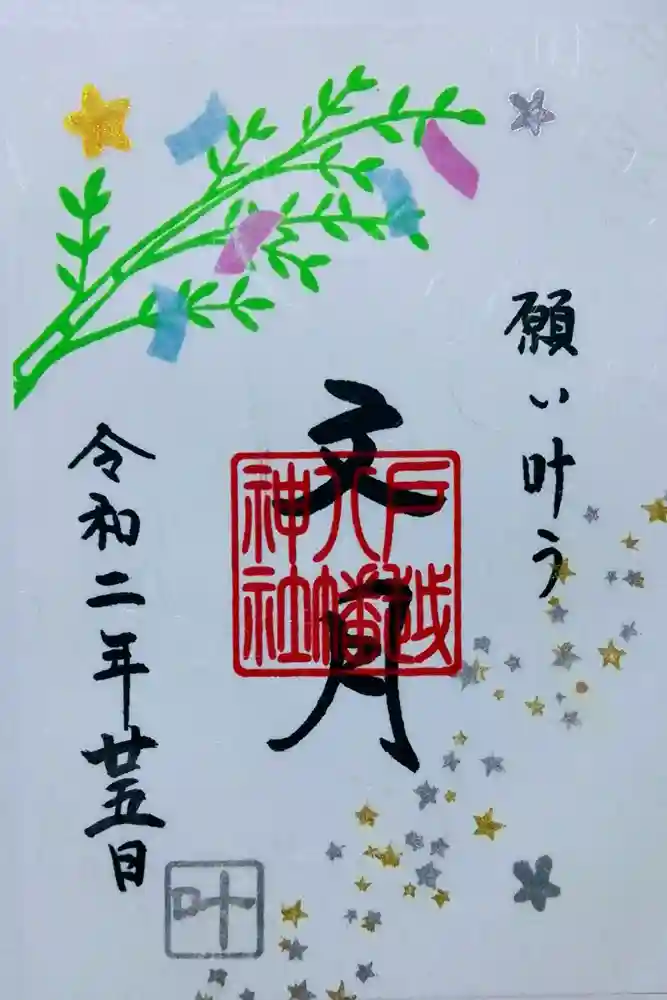 願い叶う
文月
戸越
八幡
神社
令和二年廿五日
叶